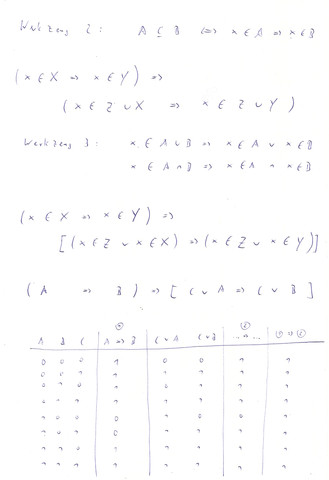 Werkzeug 2: A ⊆ B ⇔ x ∈ A ⇒ x ∈ B
(x ∈ X ⇒ x ∈ Y) ⇒
(x ∈ Z ∪ X ⇒ x ∈ Z ∪ Y)
Werkzeug 3: x ∈ A ∪ B ⇔ x ∈ A ∨ x ∈ B
x ∈ A ∩ B ⇔ x ∈ A ∧ x ∈ B
(x ∈ X ⇒ x ∈ Y) ⇒
[(x ∈ Z ∨ x ∈ X) ⇒ (x ∈ Z ∨ x ∈ Y)]
(A ⇒ B) ⇒ [C ∨ A ⇒ C ∨ B]
① ②
A B C A ⇒ B C ∨ A C ∨ B ...⇒... ① ⇒ ②
0 0 0 1 0 0 1 1
0 0 1 1 1 1 1 1
0 1 0 1 0 1 1 1
0 1 1 1 1 1 1 1
1 0 0 0 1 0 0 1
1 0 1 0 1 1 1 1
1 1 0 1 1 1 1 1
1 1 1 1 1 1 1 1